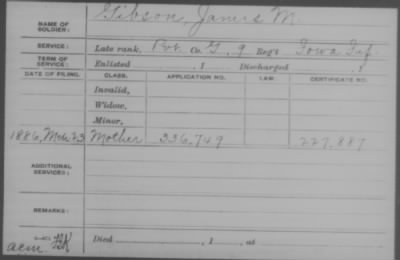 NAME OF SOLDIER: Gibson, James M.
SERVICE: Late rank, Pvt. Co. G, 9 Reg't Iowa Inf.
TERM OF SERVICE: Enlisted , 1 Discharged , 1
DATE OF FILING. CLASS. APPLICATION NO. LAW. CERTIFICATE NO.
Invalid,
Widow,
Minor,
1886, Mch 23 Mother 336,749 227,887
ADDITIONAL SERVICES:
REMARKS:
Died , 1 , at